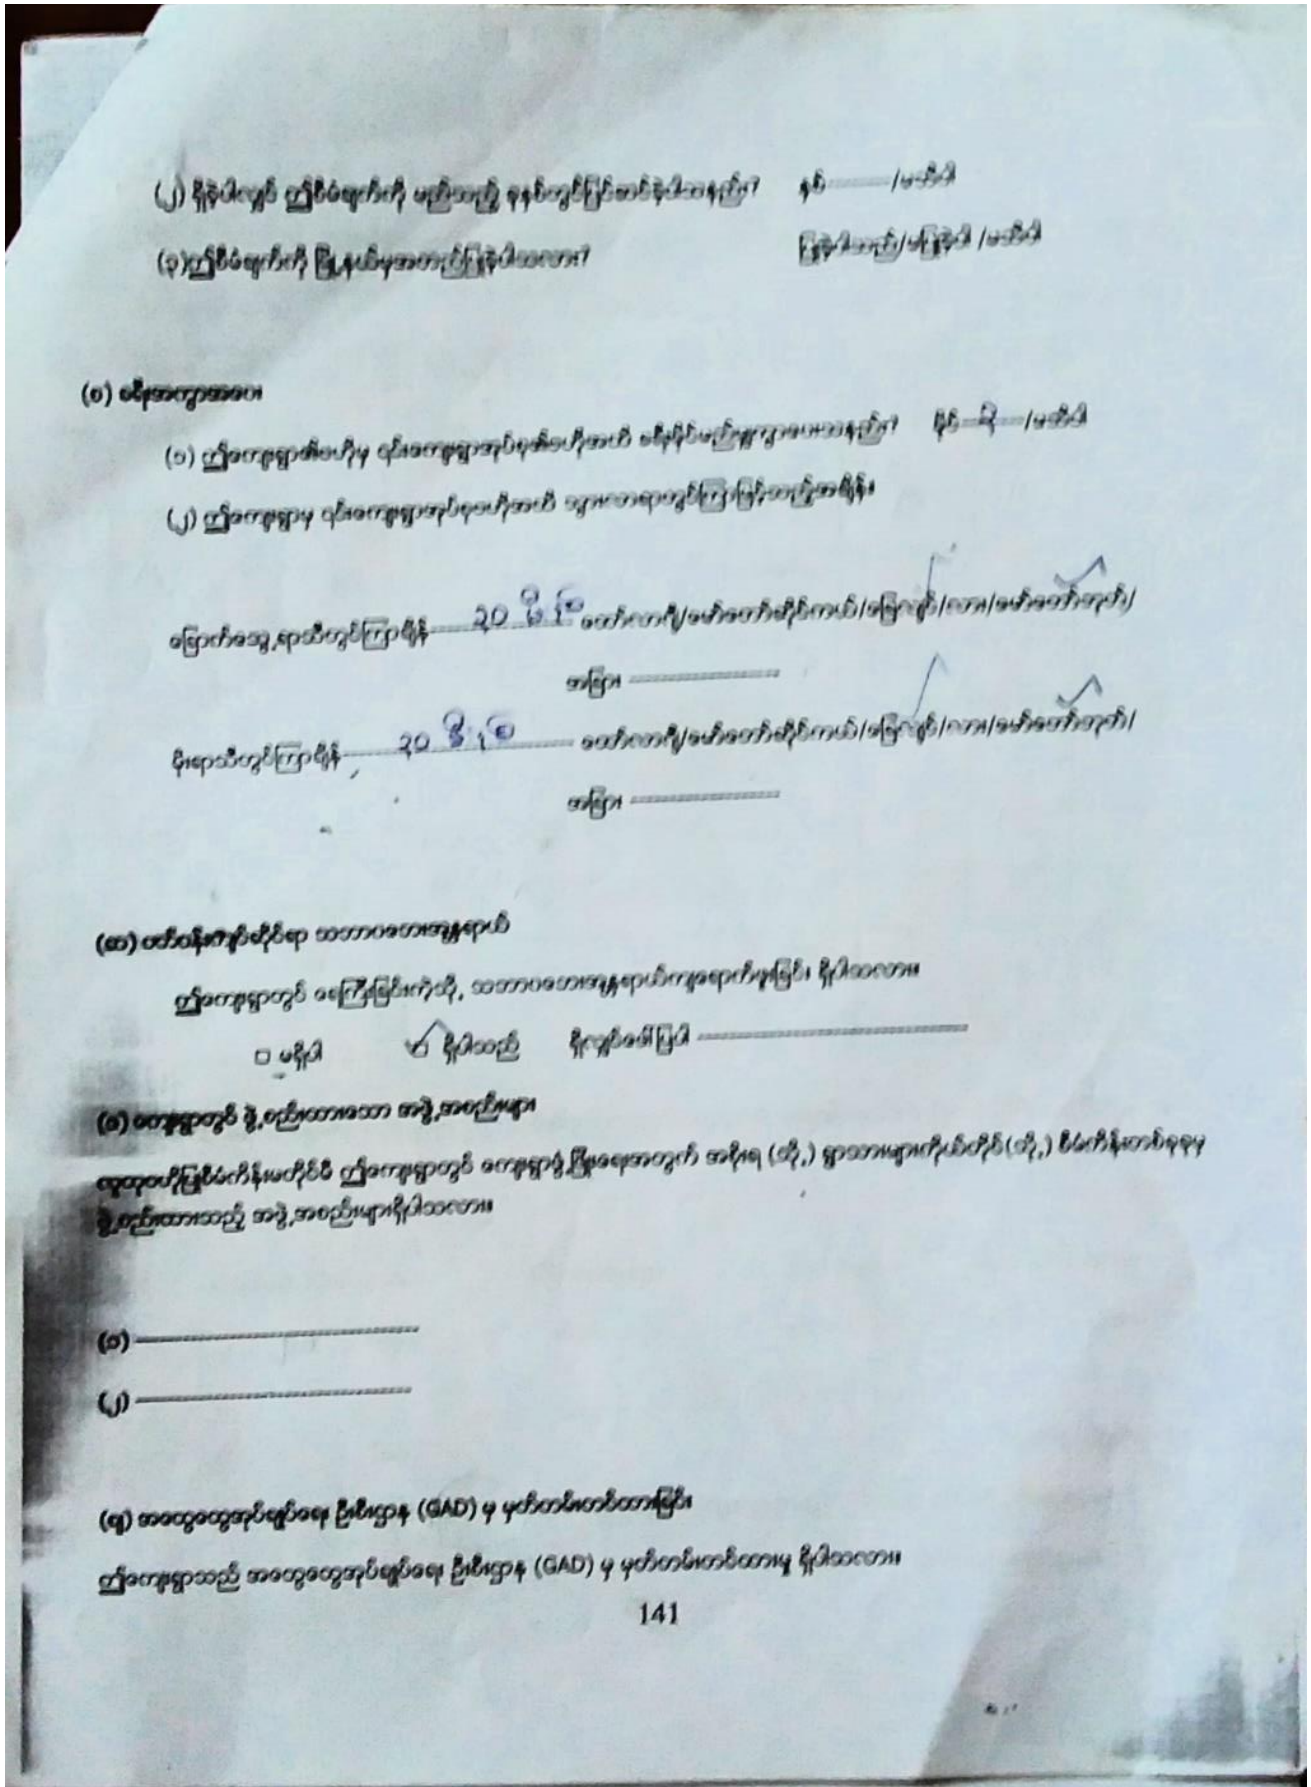 (၂) ရှိခဲ့ပါလျှင် ဤစီမံချက်ကို မည်သည့် ခုနှစ်တွင်ပြင်ဆင်ခဲ့ပါသနည်း? နှစ် ------------/မသိပါ
(၃)ဤစီမံချက်ကို မြို့နယ်မှအတည်ပြုခဲ့ပါသလား? ပြုခဲ့ပါသည်/မပြုခဲ့ပါ /မသိပါ
(စ) ခရီးအကွာအဝေး
(၁) ဤကျေးရွာ၏ဗဟိုမှ ၎င်းကျေးရွာအုပ်စု၏ဗဟိုအထိ ခရီးမိုင်မည်မျှကွာဝေးသနည်း? မိုင် ၃ /မသိပါ
(၂) ဤကျေးရွာမှ ၎င်းကျေးရွာအုပ်စုဗဟိုအထိ သွားလာရာတွင်ကြာမြင့်သည့်အချိန်။
ခြောက်သွေ့ရာသီတွင်ကြာချိန် ၃၀ မိနစ် တော်လာဂျီ/မော်တော်ဆိုင်ကယ်/ခြေလျင်/လား/မော်တော်ဘုတ်/
အခြား ------------
မိုးရာသီတွင်ကြာချိန် ၃၀ မိနစ် တော်လာဂျီ/မော်တော်ဆိုင်ကယ်/ခြေလျင်/လား/မော်တော်ဘုတ်/
အခြား ------------
(ဆ) ပတ်ဝန်းကျင်ဆိုင်ရာ သဘာဝဘေးအန္တရာယ်
ဤကျေးရွာတွင် ရေကြီးခြင်းကဲ့သို့ သဘာဝဘေးအန္တရာယ်ကျရောက်ဖူးခြင်း ရှိပါသလား။
□ မရှိပါ □ ✓ ရှိပါသည် ရှိလျှင်ဖော်ပြပါ ------------
(ဇ) ကျေးရွာတွင် ဖွဲ့စည်းထားသော အဖွဲ့အစည်းများ
လူထုဗဟိုပြုစီမံကိန်းမတိုင်မီ ဤကျေးရွာတွင် ကျေးရွာဖွံ့ဖြိုးရေးအတွက် အစိုးရ (သို့) ရွာသားများကိုယ်တိုင်(သို့) စီမံကိန်းတစ်ခုခုမှ
ဖွဲ့စည်းထားသည့် အဖွဲ့အစည်းများရှိပါသလား။
(၁) ------------
(၂) ------------
(ဈ) အထွေထွေအုပ်ချုပ်ရေး ဦးစီးဌာန (GAD) မှ မှတ်တမ်းတင်ထားခြင်း
ဤကျေးရွာသည် အထွေထွေအုပ်ချုပ်ရေး ဦးစီးဌာန (GAD) မှ မှတ်တမ်းတင်ထားမှု ရှိပါသလား။
141